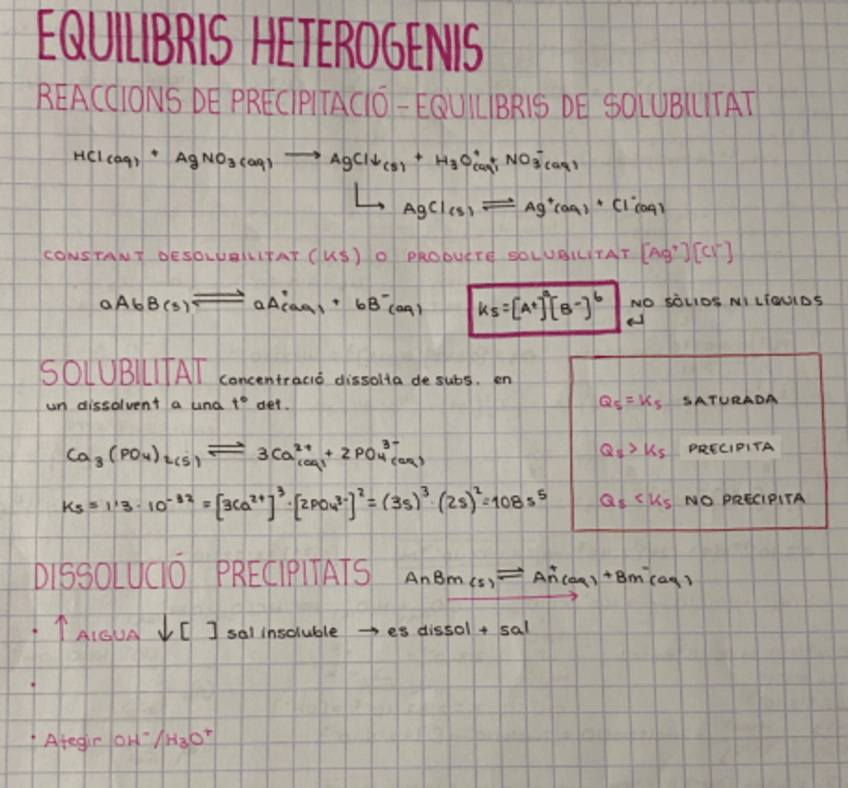 EQUILIBRIS HETEROGENIS
REACCIONS DE PRECIPITACIÓ - EQUILIBRIS DE SOLUBILITAT
HCl(aq) + AgNO₃(aq) → AgCl↓(s) + H₃O⁺(aq) + NO₃⁻(aq)
↳ AgCl(s) ⇌ Ag⁺(aq) + Cl⁻(aq)
CONSTANT DESOLUBILITAT (KS) O PRODUCTE SOLUBILITAT [Ag⁺][Cl⁻]
aAbB(s) ⇌ aA⁺(aq) + bB⁻(aq) Ks=[A⁺]ᵃ[B⁻]ᵇ NO SÒLIDS NI LÍQUIDS ↵
SOLUBILITAT Concentració dissolta de subs. en
un dissolvent a una tº det.
Qs = Ks SATURADA
Ca₃(PO₄)₂(s) ⇌ 3Ca²⁺(aq) + 2PO₄³⁻(aq)
Qs > Ks PRECIPITA
Ks = 1'3·10⁻³² = [3Ca²⁺]³·[2PO₄³⁻]² = (3s)³·(2s)² = 108s⁵
Qs < Ks NO PRECIPITA
DISSOLUCIÓ PRECIPITATS AnBm(s) ⇌ An⁺(aq) + Bm⁻(aq)
· ↑ AIGUA ↓ [ ] sal insoluble → es dissol + sal
·
· Afegir OH⁻/H₃O⁺